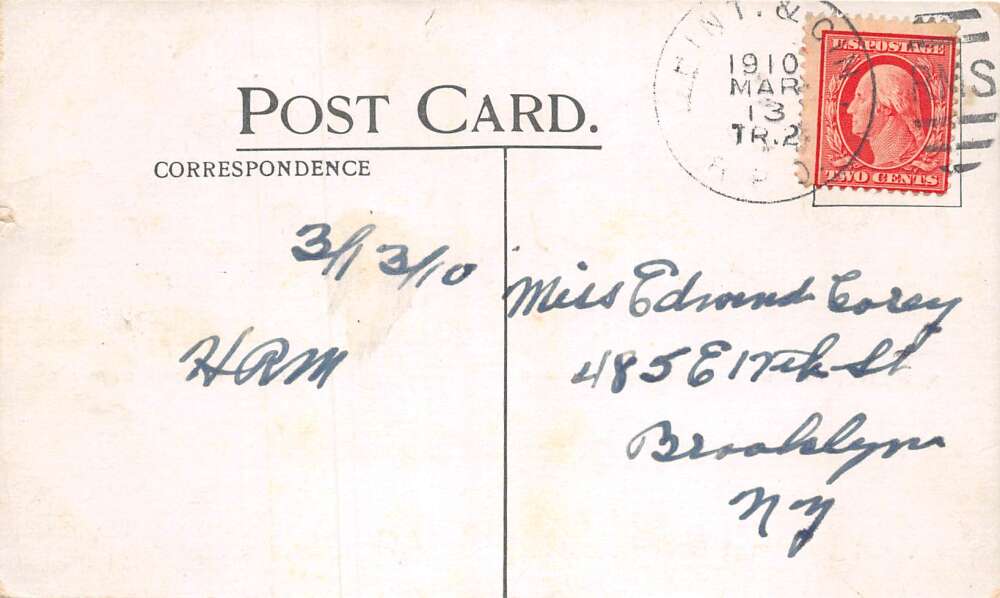 POST CARD.
CORRESPONDENCE
1910
MAR
13
TR.2
R.P.O.
RMS
U.S. POSTAGE
TWO CENTS
3/13/10
HRM
Miss Edmund Corey
485 E 17th St
Brooklyn
N Y